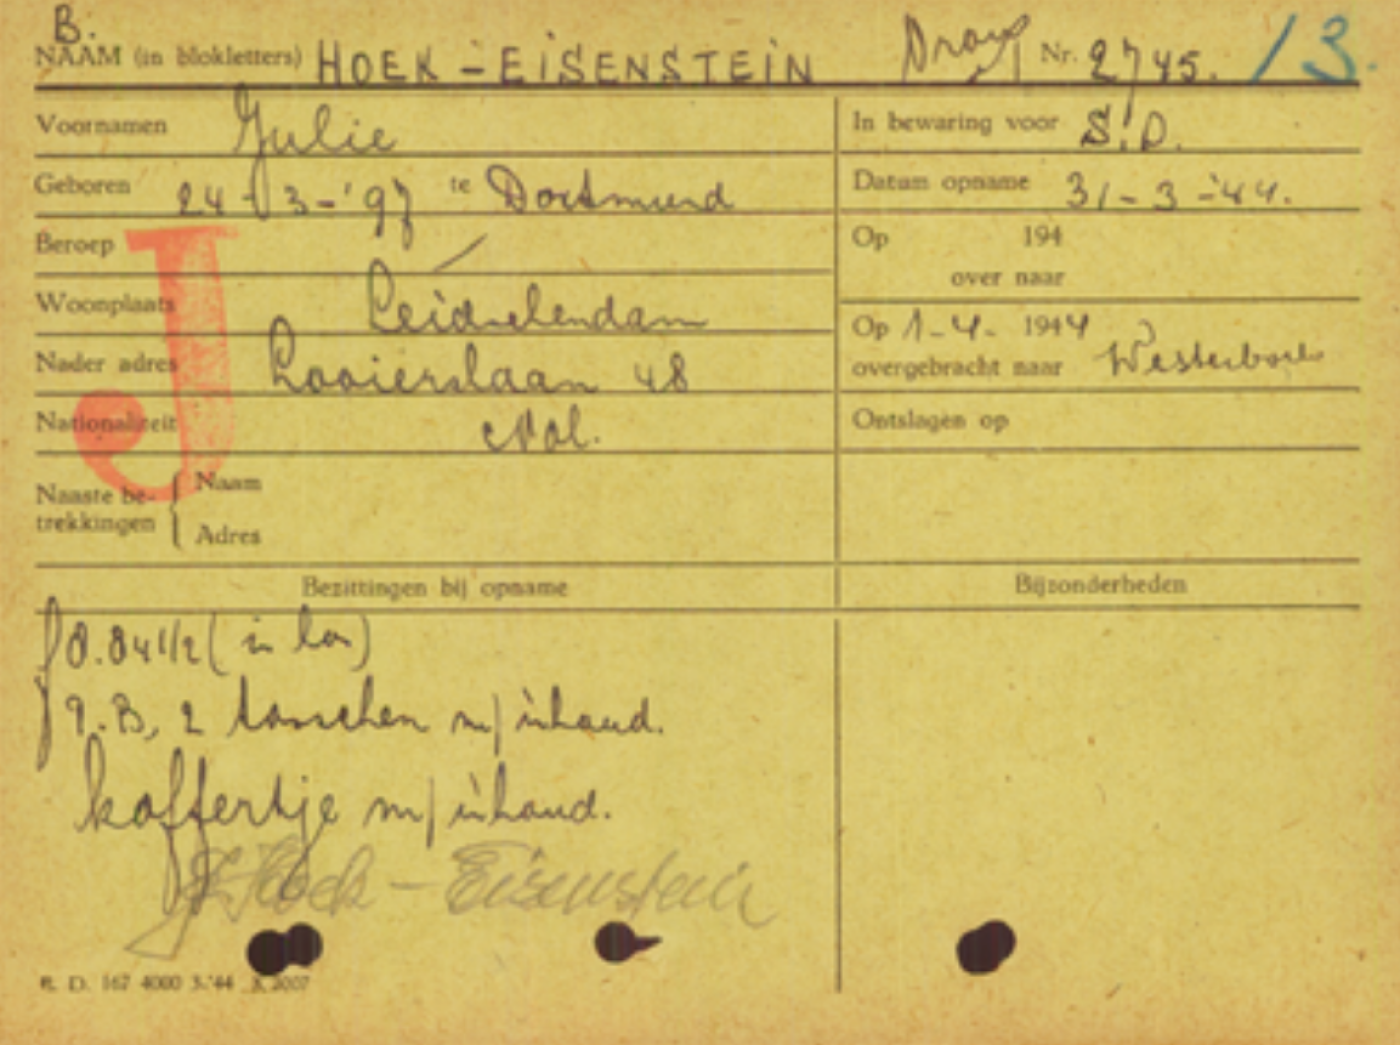 B.
NAAM (in blokletters) HOEK - EISENSTEIN Nr. 2745. 13.
Voornamen Julie
In bewaring voor S.D.
Geboren 24-3-'97 te Dortmund
Datum opname 31-3-'44.
Beroep /
Op 194
over naar
Woonplaats Leidschendam
Op 1-4- 1944
overgebracht naar Westerbork
Nader adres Looierslaan 48
Nationaliteit Ned.
Ontslagen op
J
Naaste be-
trekkingen
Naam
Adres
Bezittingen bij opname
Bijzonderheden
f 0.04 1/2 (in
P.B, 2 tasschen m/inhoud.
koffertje m/inhoud.
J. Hoek - Eisenstein
R. D. 167 4000 3-'44 K 2007